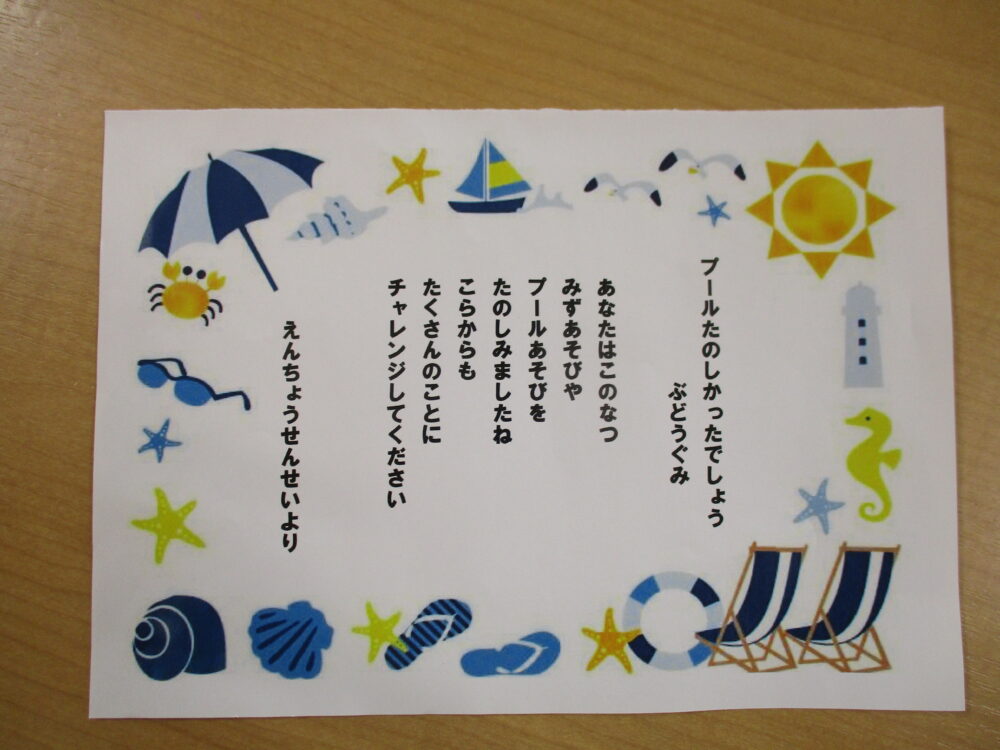 プールたのしかったでしょう
ぶどうぐみ
あなたはこのなつ
みずあそびや
プールあそびを
たのしみましたね
こらからも
たくさんのことに
チャレンジしてください
えんちょうせんせいより